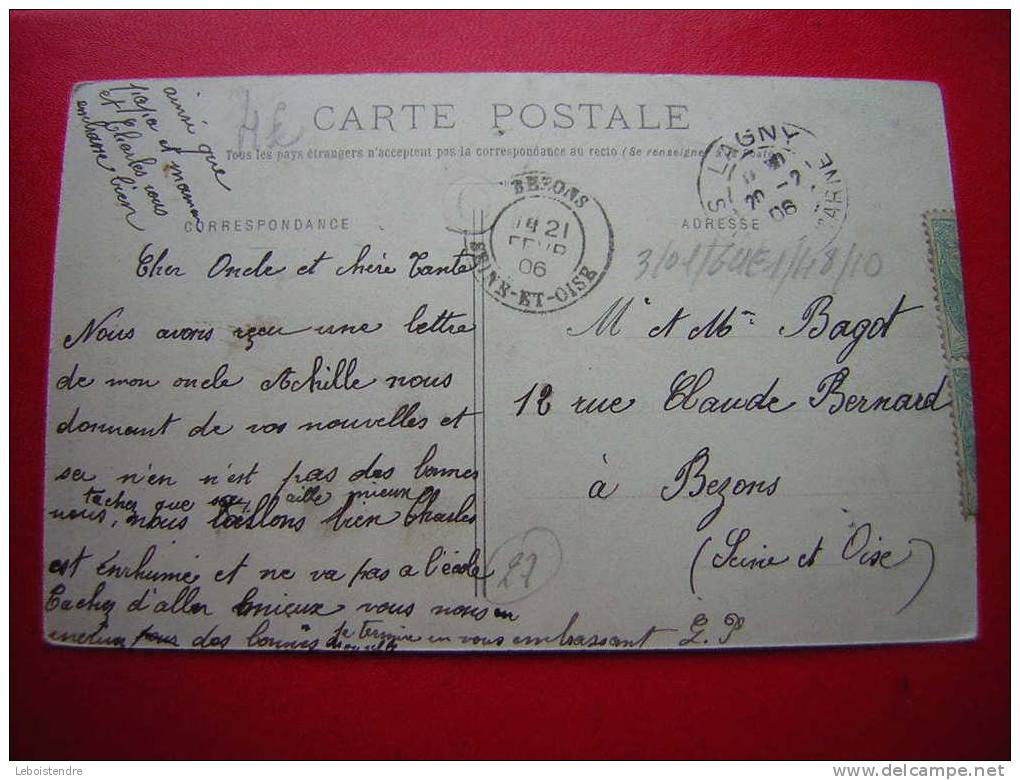 CARTE POSTALE
Tous les pays étrangers n'acceptent pas la correspondance au recto (Se renseigner à la Poste)
CORRESPONDANCE
ADRESSE
4€
LAGNY
20 -2
06
BEZONS
21
FEVR
06
SEINE-ET-OISE
Cher Oncle et chère Tante
Nous avons reçu une lettre
de mon oncle Achille nous
donnant de vos nouvelles et
sa n'en n'est pas des bonnes
tachez que aille mieux
nous, nous allons bien Charles
est énrhumé et ne va pas a l'école
Tachez d'aller mieux vous nous en
pas des bonnes je termine en vous embrassant L. P
ainsi que
papa et maman
et Charles vous
embrasse bien
Mr et Mme Bagot
12 rue Claude Bernard
à Bezons
(Seine et Oise)
27
Leboistendre
DELCAMPE.NET